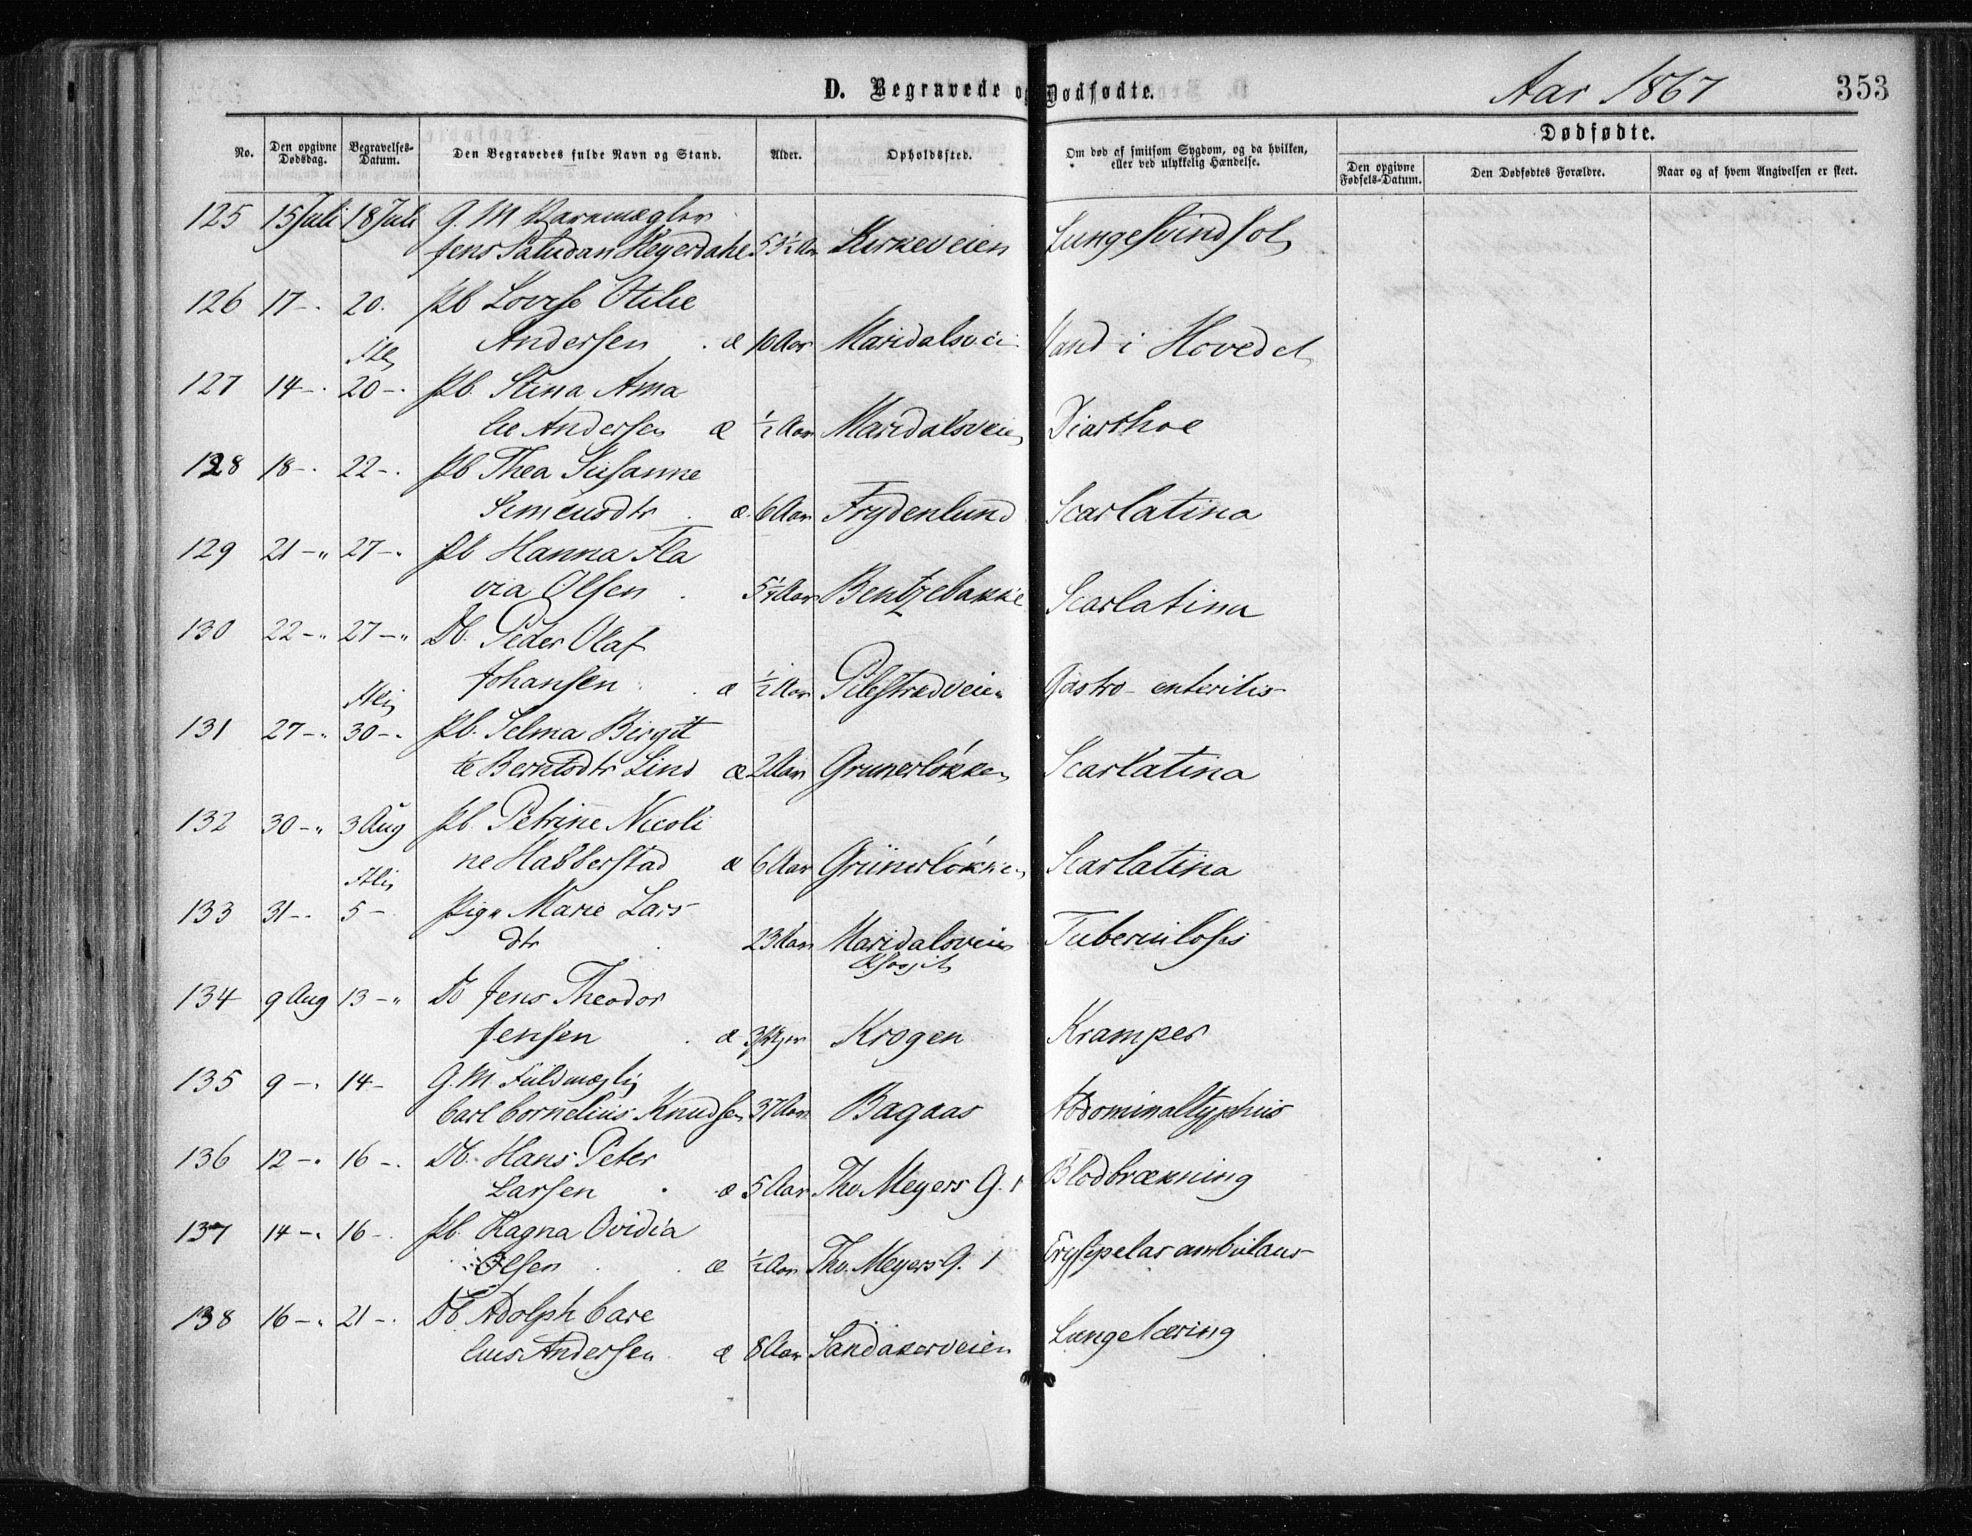 D. Begravede og Dødfødte.
Aar 1867
353
No.
Den opgivne Dødsdag.
Begravelses-Datum.
Den Begravedes fulde Navn og Stand.
Alder.
Opholdssted.
Om død af smitsom Sygdom, og da hvilken, eller ved ulykkelig Hændelse.
Dødfødte.
Den opgivne Fødsels-Datum.
Den Dødfødtes Forældre.
Naar og af hvem Angivelsen er skeet.
125 15 Juli 18 Juli G. M.
Jens Paludan Heyerdahl 5 1/2 Aar Kirkeveien Lungesvindsot
126 17 -. 20. Pb Lovise Otilie
Andersen . æ 10 Aar Maridalsvei Vand i Hovedet
127 14 -. 20 -. Pb. Stina Ama
lie Andersen æ 1/2 Aar Maridalsveien Diarrhoe
128 18 -. 22 -. Pb Thea Susanne
Simensdtr . æ. 6 Aar Frydenlund Scarlatina
129 21 -" 27 -. Pb Hanna Fla
via Olsen . Aar Bentzebakke Scarlatina
130 22 -" 27 -" Db. Peder Olaf
Johansen . æ 1/2 Aar Pilestrædveien Gastro-enteritis
131 27 -. 30 -. Pb. Selma Birgit
te Berntsdtr Lind æ 2 Aar Grunerløkken Scarlatina
132 30 -" 3 Aug Pb. Petrine Nicoli
ne Habberstad æ 6 Aar Grünerløkken Scarlatina
133 31 -. 5 - Pige Marie Lars
dtr . 23 Aar Maridalsveien Tuberculosis
134 9 Aug 13 -" Db Jens Theodor
Jensen . æ 3 Krogen Kramper
135 9 -. 14 - G. M. Fuldmægtig
Carl Cornelius Knudsen 37 Aar Bagaas Abdominaltyphus
136 12 -. 16 -. Db. Hans Peter
Larsen . æ 5 Aar Thv. Meyers G. 1 Blodbrækning
137 14 -. 16 -. Pb. Ragna Ovidia
Olsen . . æ 1/2 Aar Thv. Meyers G. 1 Erysipelas ambulans
138 16 -. 21 -. Db Adolph Care
lius Andersen æ 8 Aar Sandakerveien Lungetæring